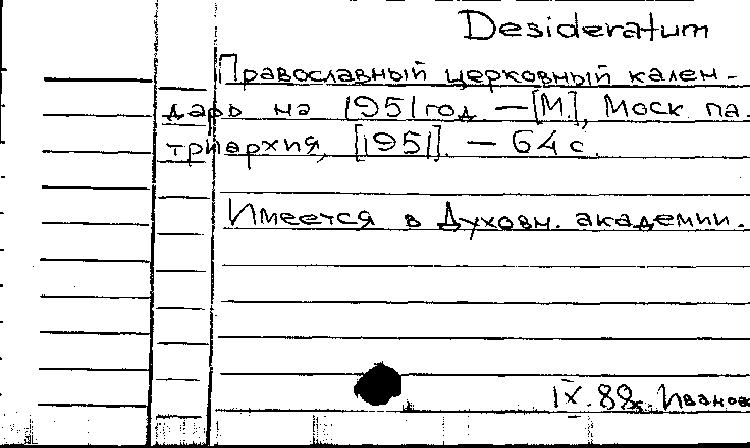 Desideratum
Православный церковный кален-
дарь на 1951 год. – [М.], Моск. па-
триархия, [1951]. – 64 с.
Имеется в Духовн. академии.
IX.88г. Иванов